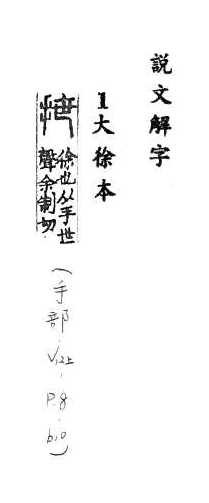 說文解字
1大徐本
抴
捈也从手世
聲余制切
(手部.V12上.P.8.b10)